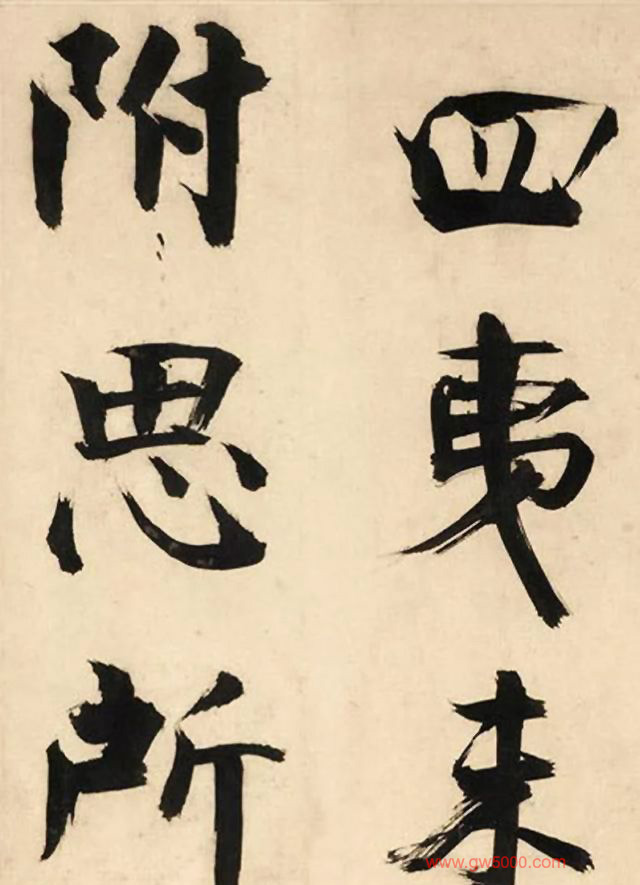 四夷来
附思所
www.gw5000.com